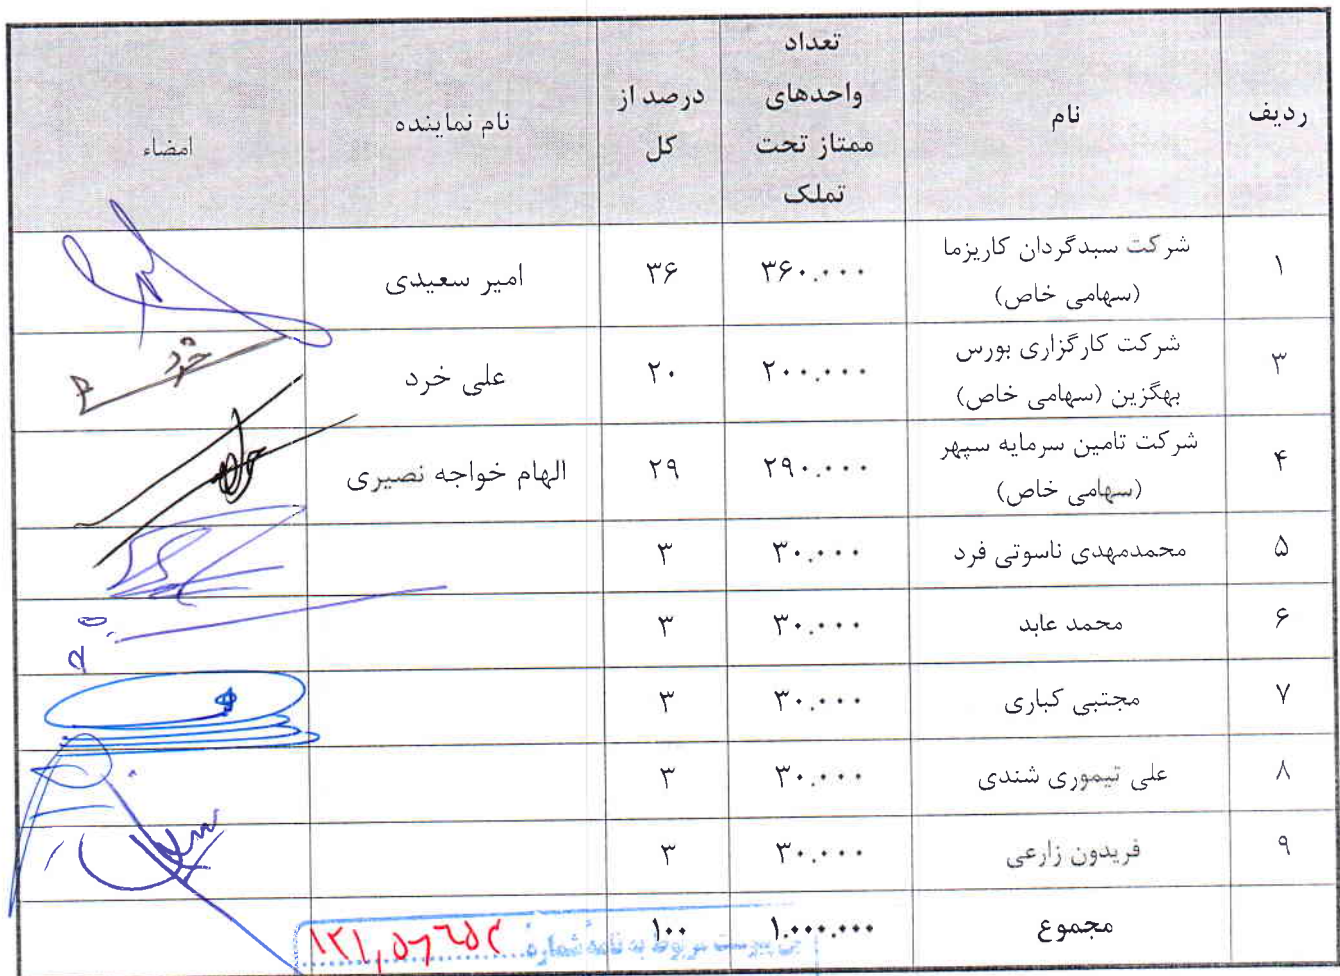 ردیف
نام
تعداد
واحدهای
ممتاز تحت
تملک
درصد از
کل
نام نماینده
امضاء
۱
شرکت سبدگردان کاریزما
(سهامی خاص)
۳۶۰.۰۰۰
۳۶
امیر سعیدی
۳
شرکت کارگزاری بورس
بهگزین (سهامی خاص)
۲۰۰.۰۰۰
۲۰
علی خرد
خرد
۴
شرکت تامین سرمایه سپهر
(سهامی خاص)
۲۹۰.۰۰۰
۲۹
الهام خواجه نصیری
۵
محمدمهدی ناسوتی فرد
۳۰.۰۰۰
۳
۶
محمد عابد
۳۰.۰۰۰
۳
۷
مجتبی کباری
۳۰.۰۰۰
۳
۸
علی تیموری شندی
۳۰.۰۰۰
۳
۹
فریدون زارعی
۳۰.۰۰۰
۳
مجموع
۱.۰۰۰.۰۰۰
۱۰۰
پیوست مربوط به نامه شماره